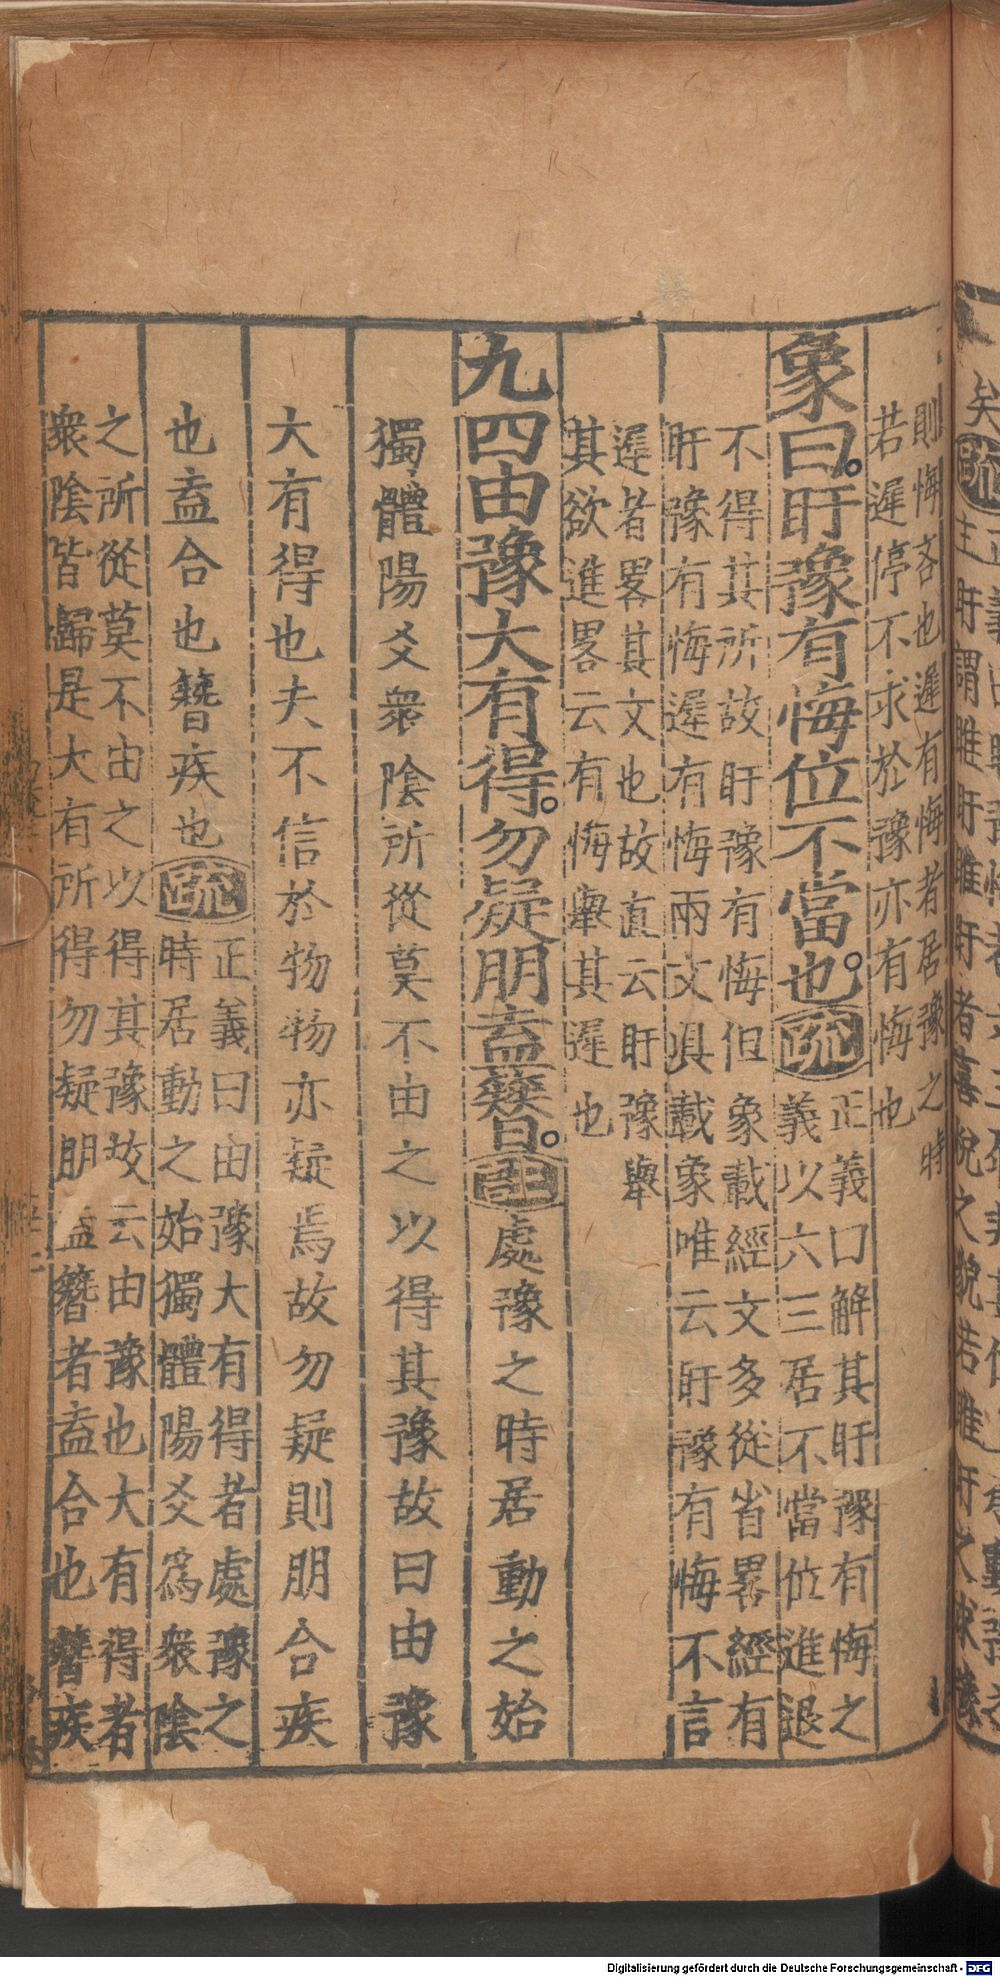 矣疏
主盱謂睢盱睢盱者喜悅之貌若睢盱之求豫
則悔吝也遲有悔者居豫之時
若遲停不求於豫亦有悔也
象曰。盱豫有悔位不當也。疏
正義曰解其盱豫有悔之
義以六三居不當位進退
不得其所故盱豫有悔但象載經文多從省畧經有
盱豫有悔遲有悔兩文俱載象唯云盱豫有悔不言
遲者畧其文也故直云盱豫舉
其欲進畧云有悔舉其遲也
九四由豫大有得。勿疑朋盍簪。註處豫之時居動之始
獨體陽爻衆陰所從莫不由之以得其豫故曰由豫
大有得也夫不信於物物亦疑焉故勿疑則朋合疾
也盍合也簪疾也疏
正義曰由豫大有得者處豫之
時居動之始獨體陽爻爲衆陰
之所從莫不由之以得其豫故云由豫也大有得者
衆陰皆歸是大有所得勿疑朋盍簪者盍合也簪疾
Digitalisierung gefördert durch die Deutsche Forschungsgemeinschaft - DFG